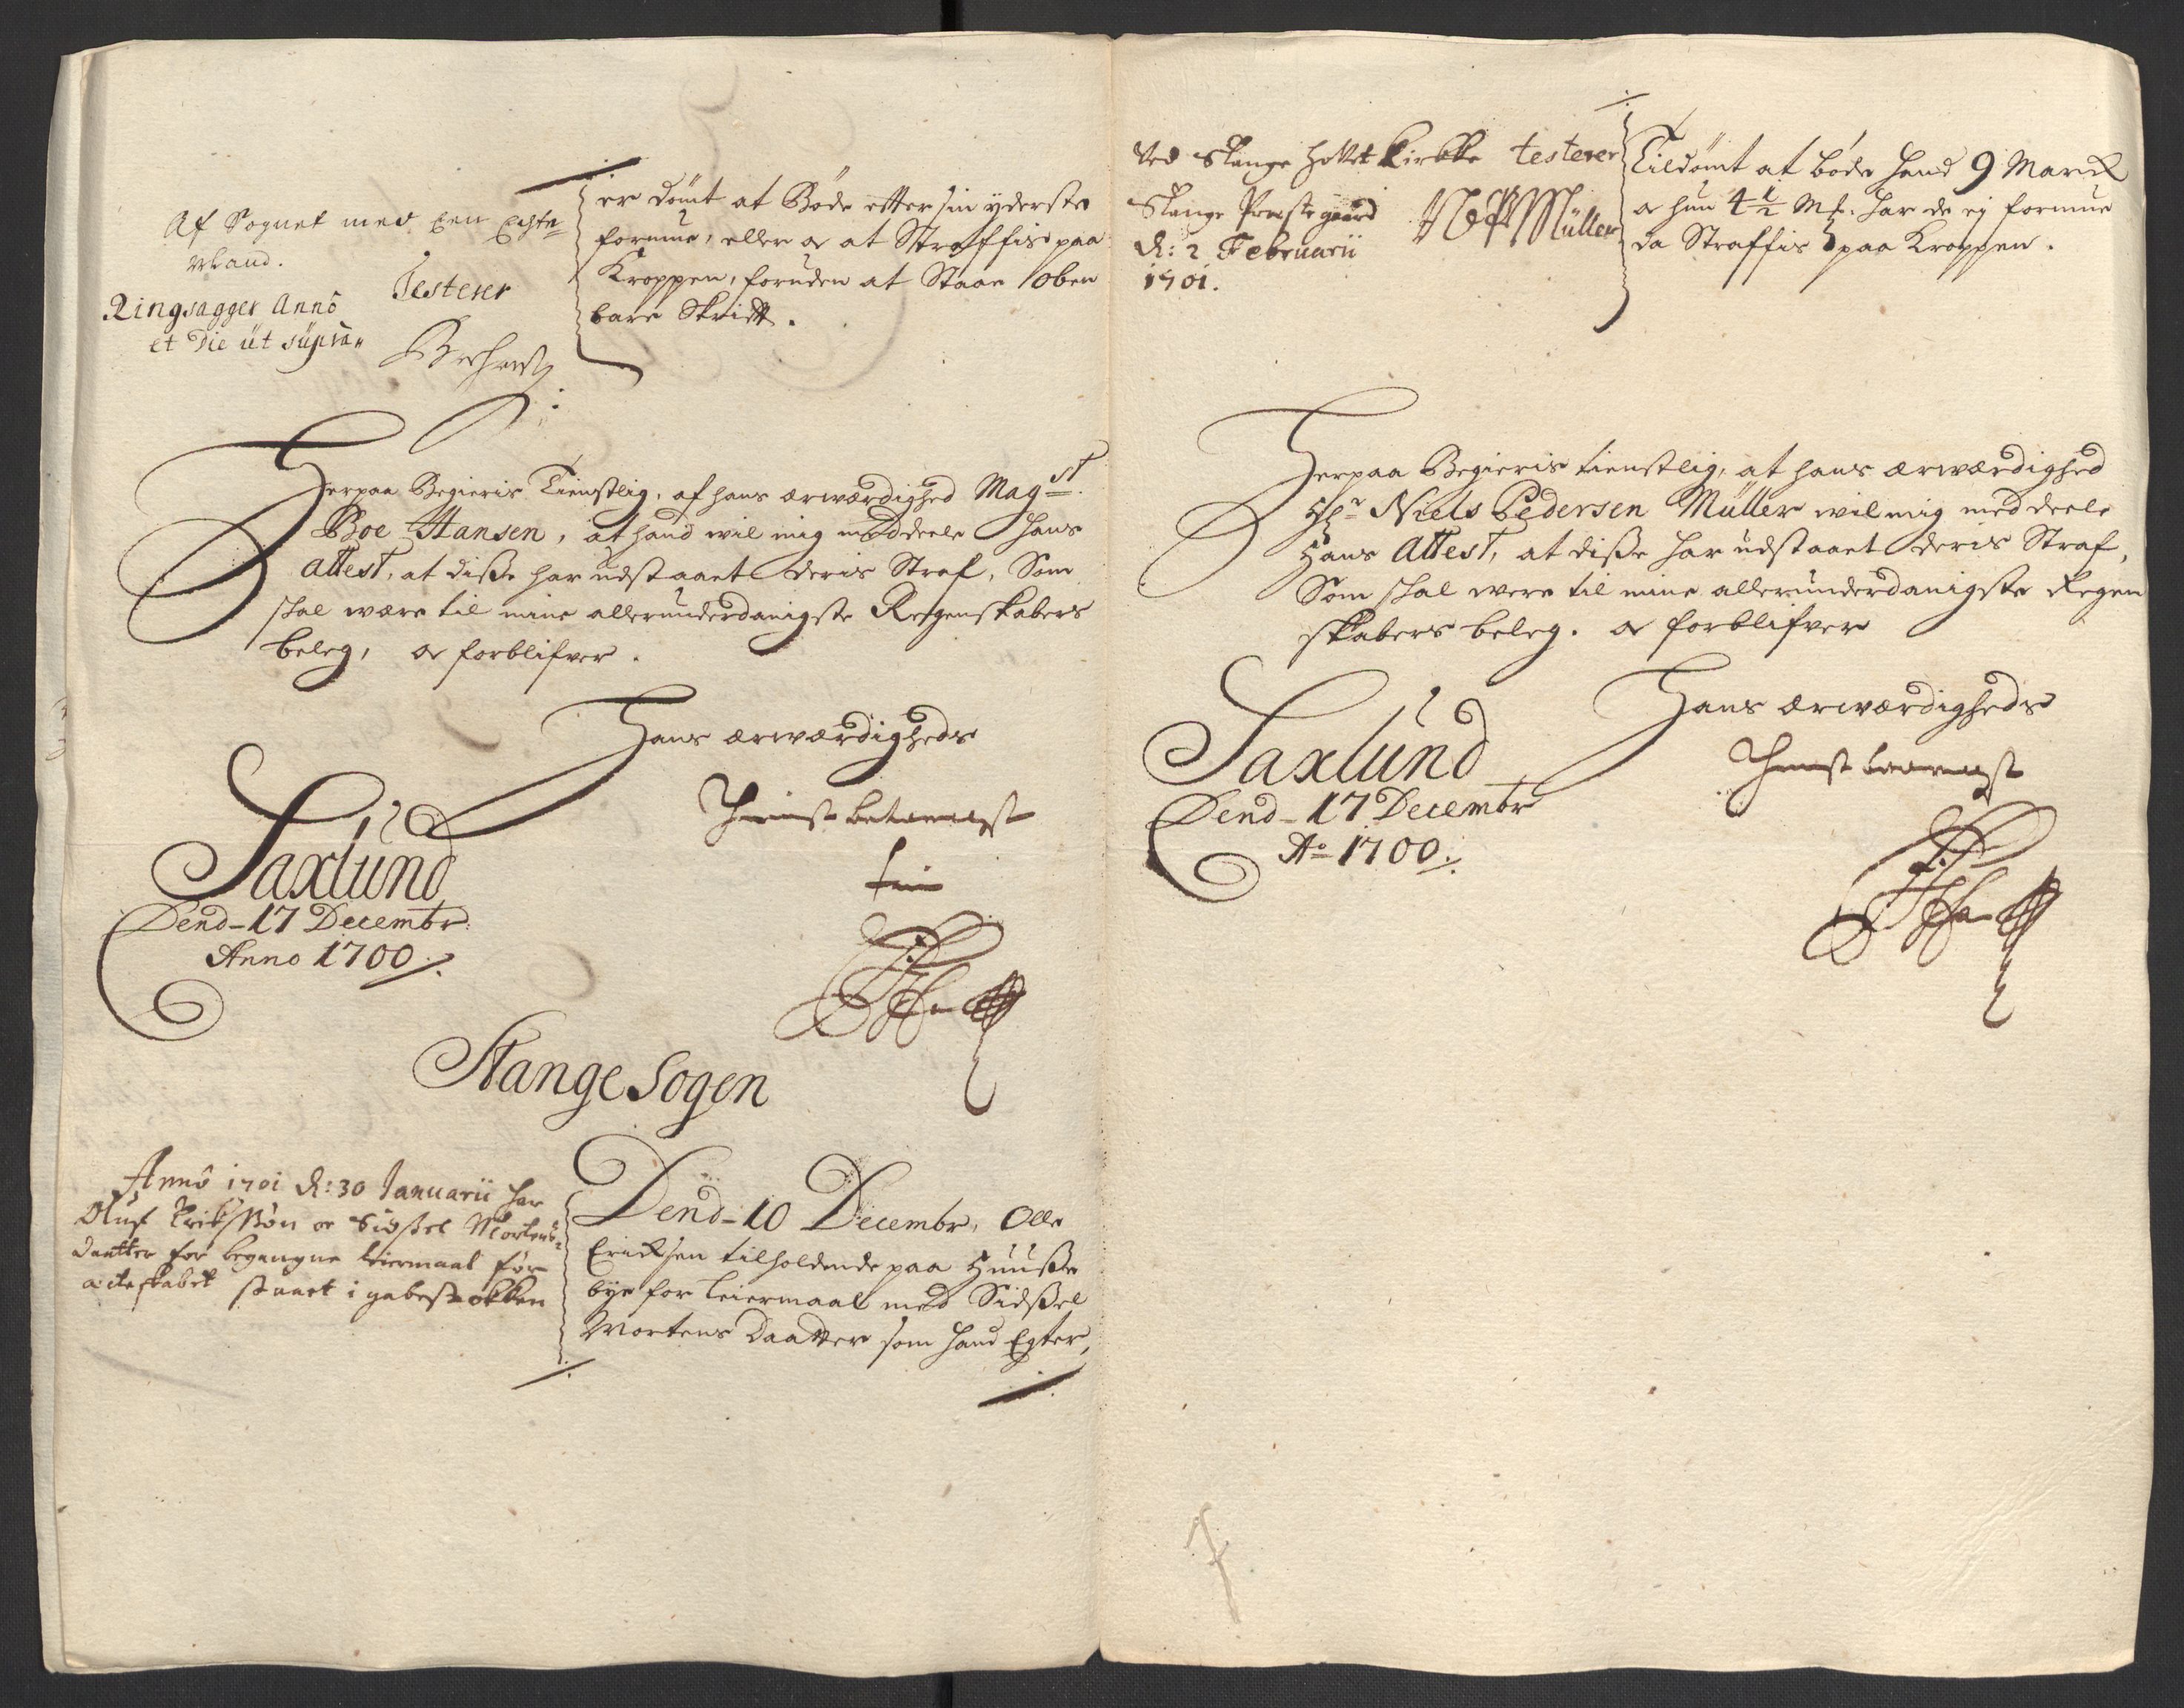 Af Sognet med een Echte
Mand.
Testerer
Ringsagger Anno
et Die ut supra
er dömt at Böde efter sin yderste
formue, eller og at Straffis paa
Kroppen, foruden at Staae oben
bare Skrifft.
Herpaa Begieris Tienstlig, af hans ærwærdighed Magst.
Boe Hansen, at hand wil mig meddeele hans
attest, at diße har udstaaet deris Straf, Som
skal være til mine allerunderdanigste Regenskabers
beleg, og forblifver.
Hans ærwærdigheds
Saxlund
Dend 17 Decembr
Anno 1700 ./.
Stange Sogen
Anno 1701 d: 30 Januarii har
Oluf Erikssøn og Sidsel Mortens-
daatter for begangne leiermaal før
ægteskabet staaet i gabestokken
Dend 10 Decembr, Olle
Ericksen tilholdende paa Huuße
bye for Leiermaal med Sidßel
Mortens Daatter som hand Egter,
ved Stange hovet Kirkke testerer
Stange Præstegaard
d: 2 Februarii
1701.
NPMüller
Tildömt at böde hand 9 Marck
og hun 4 1/2 Mk. har de ej formue
da Straffis paa Kroppen.
Herpaa Begieris tienstlig, at hans ærwærdighed
Hr Niels Pedersen Müller wil mig meddeele
Hans Attest, at diße har udstaaet deris Straf,
Som skal were til mine allerunderdanigste Regen
skabers beleg. og forblifver
Hans ærwærdigheds
Saxlund
Dend 17 Decembr
Ao 1700 ./.